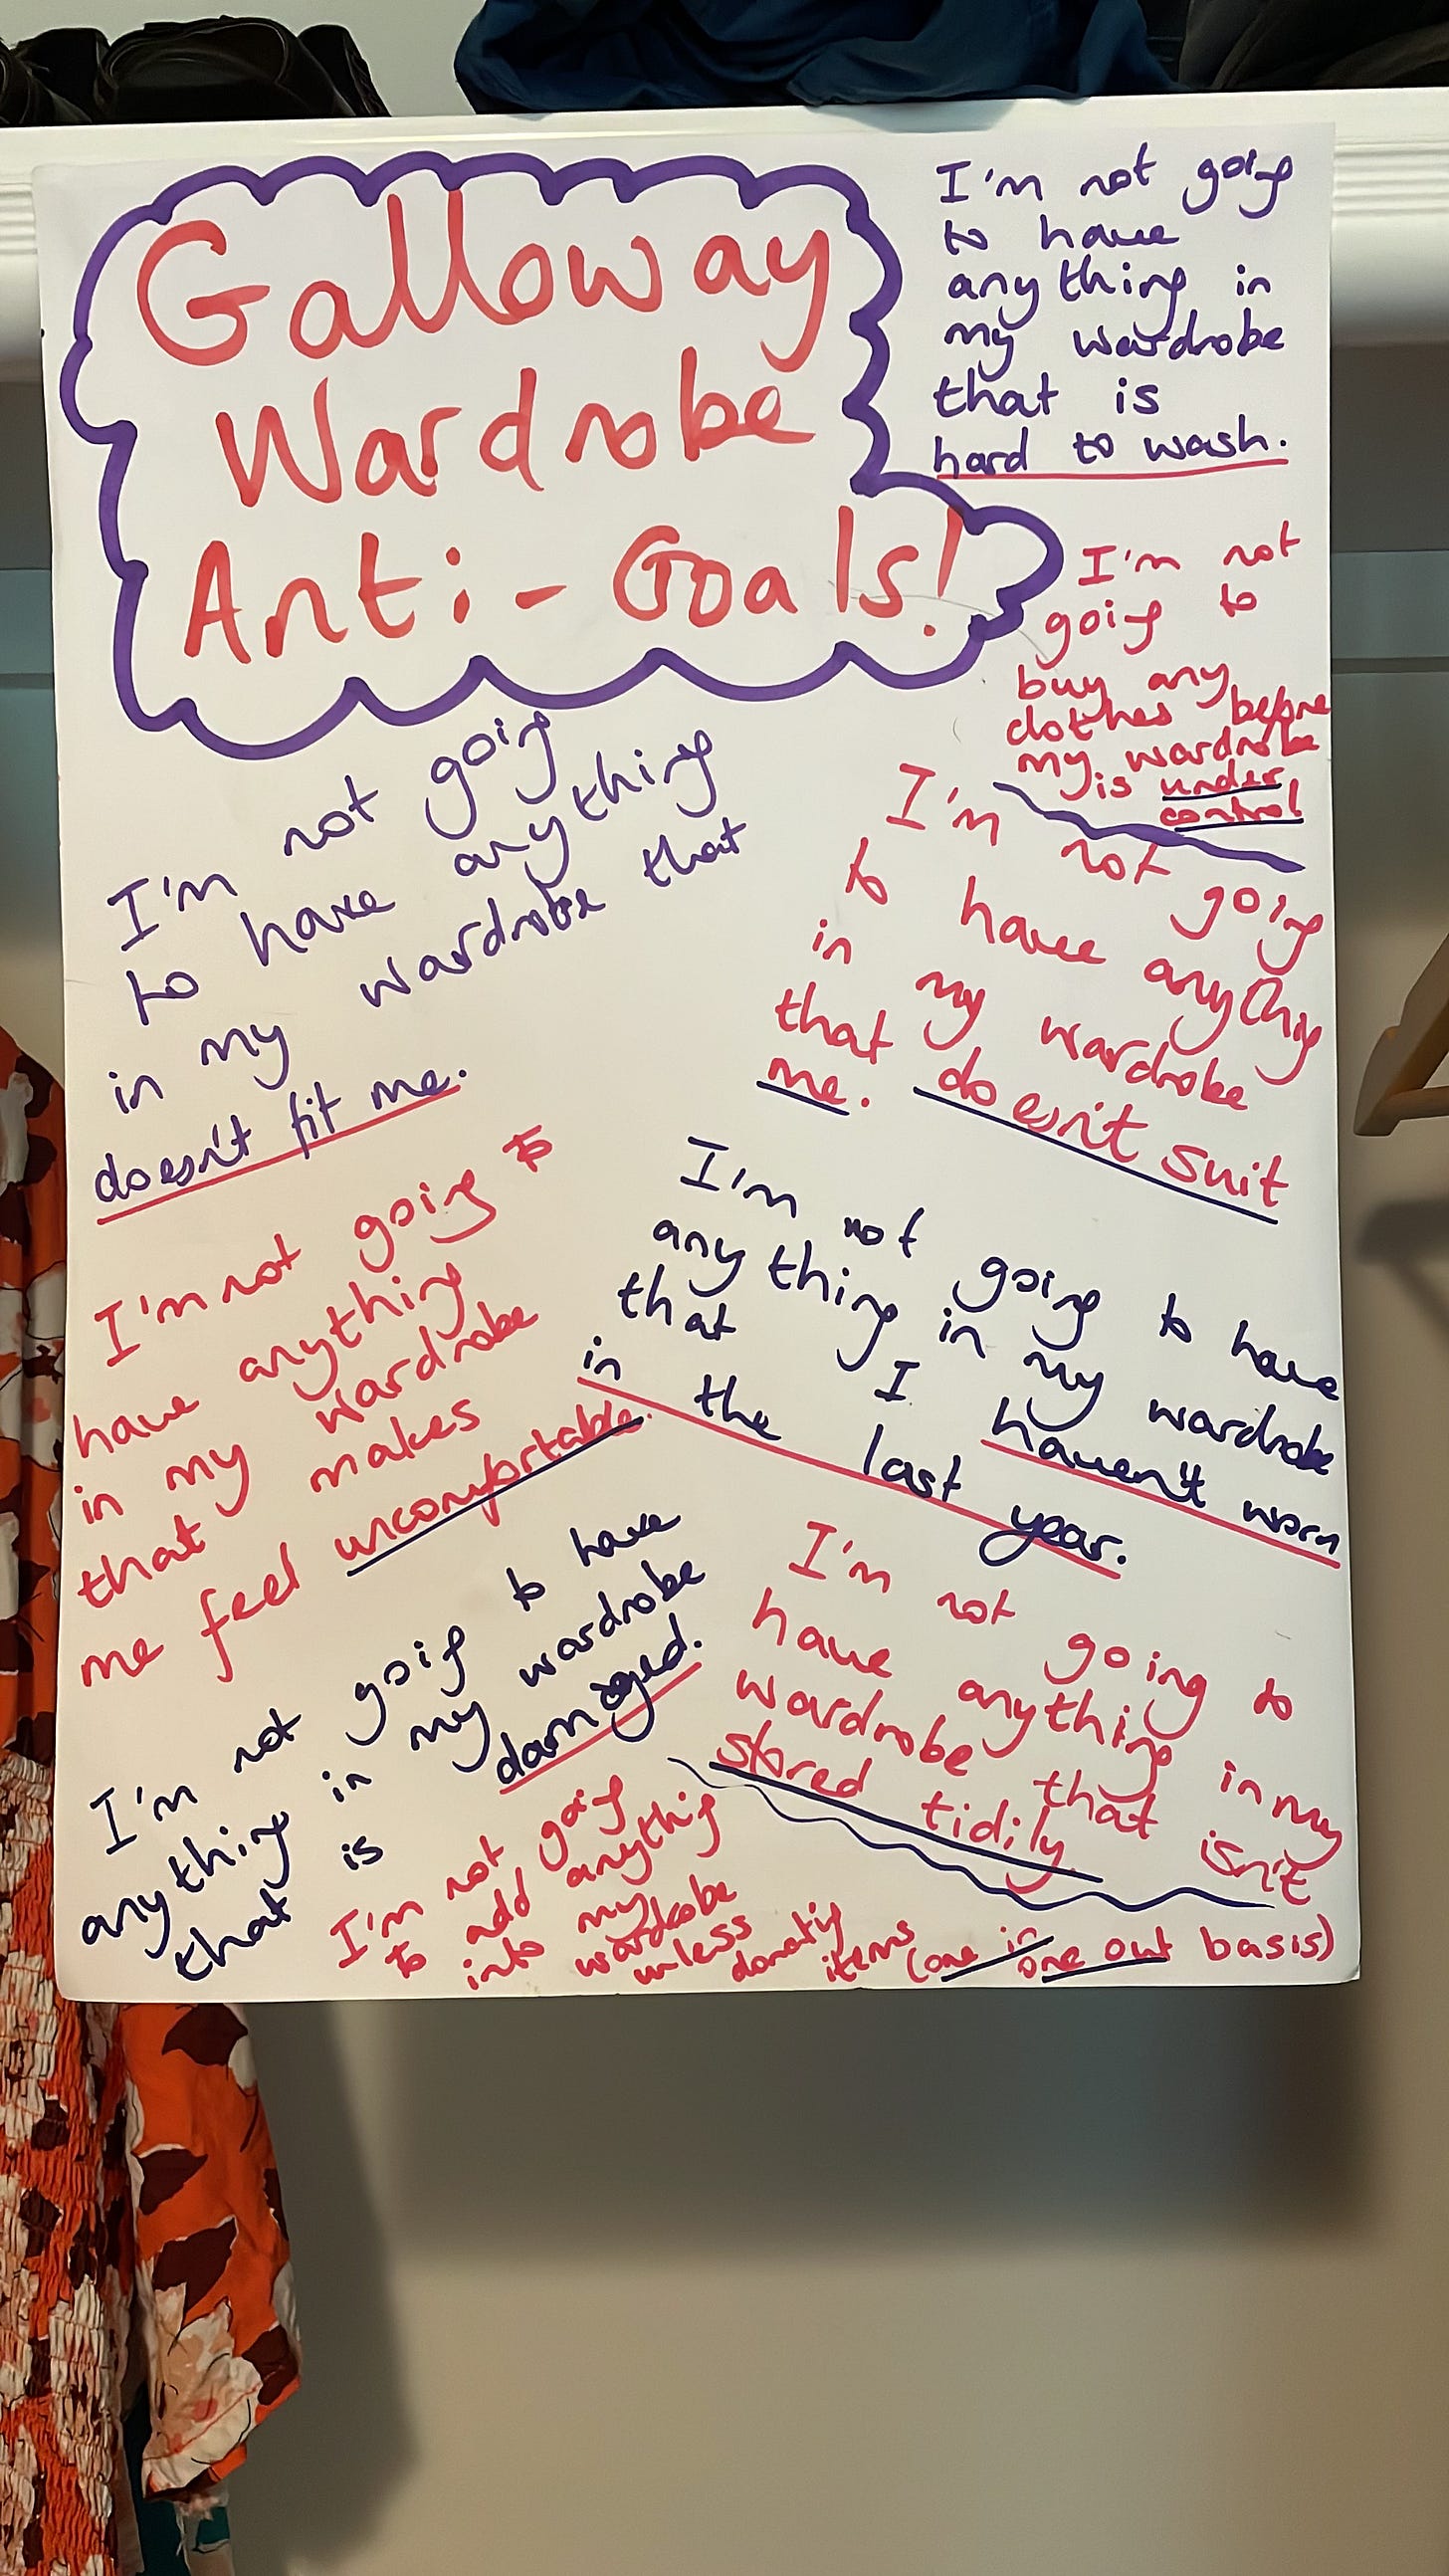 Galloway
Wardrobe
Anti-Goals!
I'm not going
to have
anything in
my wardrobe
that is
hard to wash.
I'm not
going to
buy any
clothes before
my wardrobe
is under
control
I'm not going
to have anything
in my wardrobe that
doesn't fit me.
I'm not going
to have anything
in my wardrobe
that doesn't suit
me.
I'm not going to
have anything
in my wardrobe
that makes
me feel uncomfortable.
I'm not going to have
anything in my wardrobe
that I haven't worn
in the last year.
I'm not going to have
anything in my wardrobe
that is damaged.
I'm not going to
have anything in my
wardrobe that isn't
stored tidily.
I'm not going
to add anything
into my
wardrobe
unless
donatig
items (one in
one out basis)